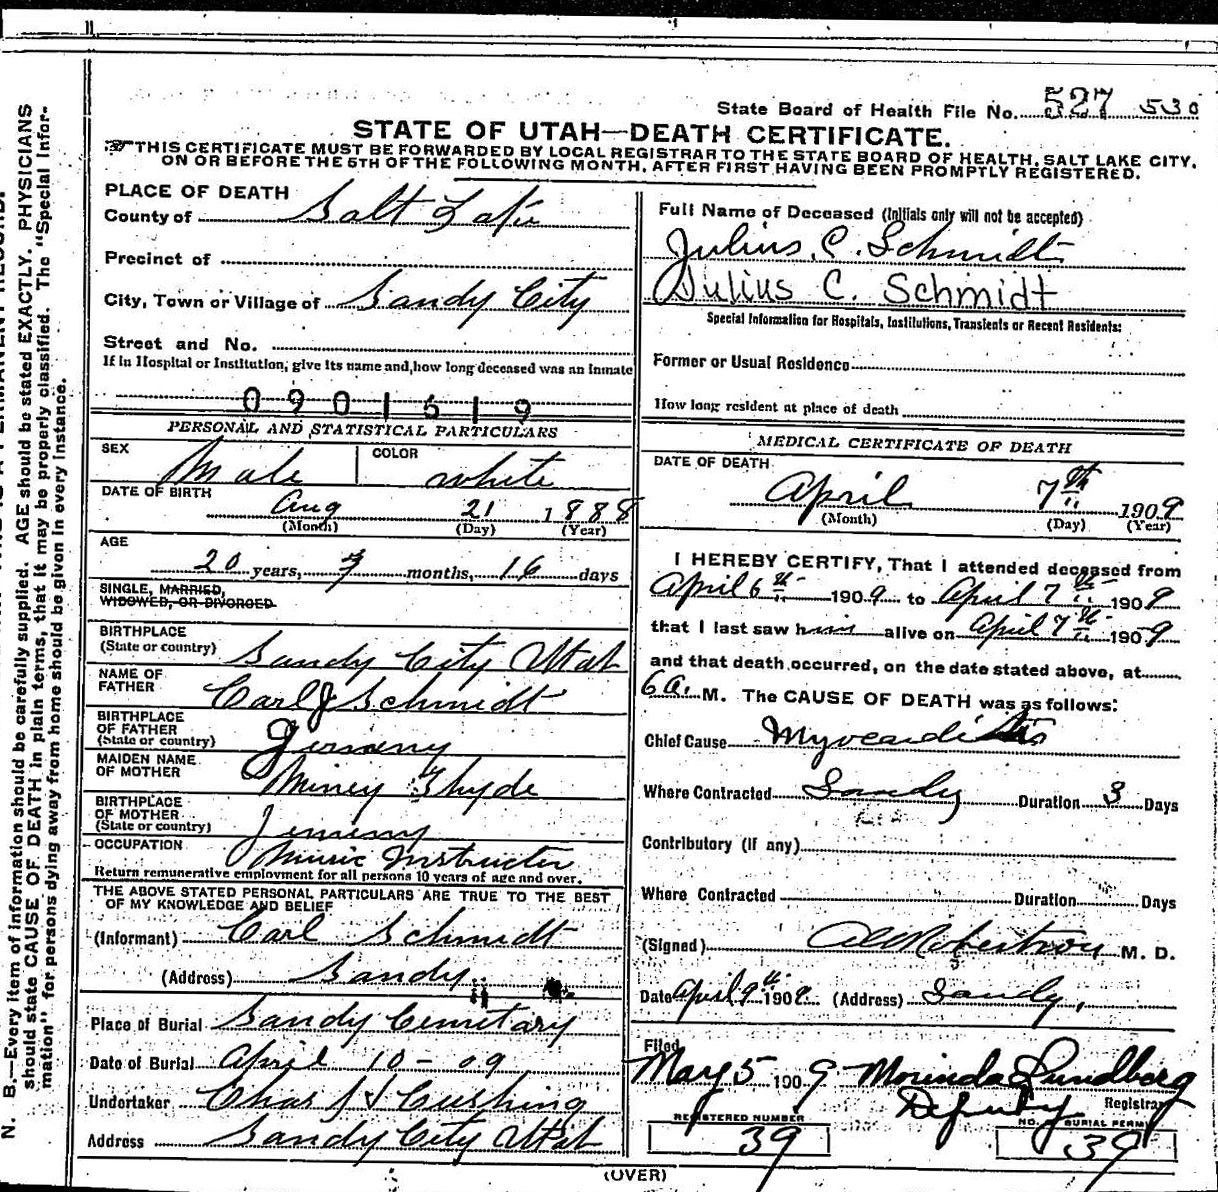 State Board of Health File No. 527 530
STATE OF UTAH—DEATH CERTIFICATE.
THIS CERTIFICATE MUST BE FORWARDED BY LOCAL REGISTRAR TO THE STATE BOARD OF HEALTH, SALT LAKE CITY,
ON OR BEFORE THE 5TH OF THE FOLLOWING MONTH, AFTER FIRST HAVING BEEN PROMPTLY REGISTERED.
PLACE OF DEATH
County of Salt Lake
Precinct of
City, Town or Village of Sandy City
Street and No.
If in Hospital or Institution, give its name and how long deceased was an inmate
0901519
PERSONAL AND STATISTICAL PARTICULARS
SEX Male COLOR white
DATE OF BIRTH Aug 21 1888
(Month) (Day) (Year)
AGE
20 years, 7 months, 16 days
SINGLE, MARRIED,
WIDOWED, OR DIVORCED
BIRTHPLACE
(State or country) Sandy City Utah
NAME OF
FATHER Carl J Schmidt
BIRTHPLACE
OF FATHER
(State or country) Germany
MAIDEN NAME
OF MOTHER Miney
BIRTHPLACE
OF MOTHER
(State or country) Jermeny
OCCUPATION Music Instructer
Return remunerative employment for all persons 10 years of age and over.
THE ABOVE STATED PERSONAL PARTICULARS ARE TRUE TO THE BEST
OF MY KNOWLEDGE AND BELIEF
(Informant) Carl Schmidt
(Address) Sandy
Place of Burial Sandy Cemetary
Date of Burial April 10-09
Undertaker Chas Cushing
Address Sandy City Utah
Full Name of Deceased (Initials only will not be accepted)
Julius C. Schmidt
Julius C. Schmidt
Special Information for Hospitals, Institutions, Transients or Recent Residents:
Former or Usual Residence
How long resident at place of death
MEDICAL CERTIFICATE OF DEATH
DATE OF DEATH
April 7th 1909
(Month) (Day) (Year)
I HEREBY CERTIFY, That I attended deceased from
April 6th 1909 to April 7th 1909
that I last saw him alive on April 7th 1909
and that death occurred, on the date stated above, at
6 a. M. The CAUSE OF DEATH was as follows:
Chief Cause Myocarditis
Where Contracted Sandy Duration 3 Days
Contributory (if any)
Where Contracted Duration Days
(Signed) M. D.
Date April 9th 1909. (Address) Sandy,
Filed
May 5 1909 Morinda Lundberg
Deputy Registrar
REGISTERED NUMBER
39
NO. BURIAL PERMIT
39
(OVER)
N. B.—Every item of information should be carefully supplied. AGE should be stated EXACTLY. PHYSICIANS
should state CAUSE OF DEATH in plain terms, that it may be properly classified. The "Special Infor-
mation" for persons dying away from home should be given in every instance.